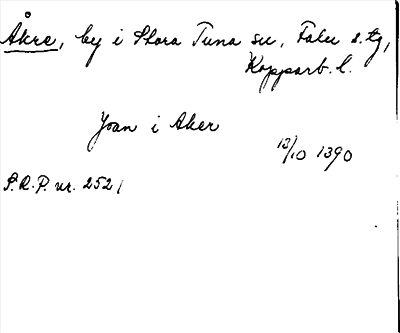 Åkre, by i Stora Tuna sn, Falu s. tg,
Kopparb. l.
Joan i Aker
13/10 1390
S.R.P. nr. 2521